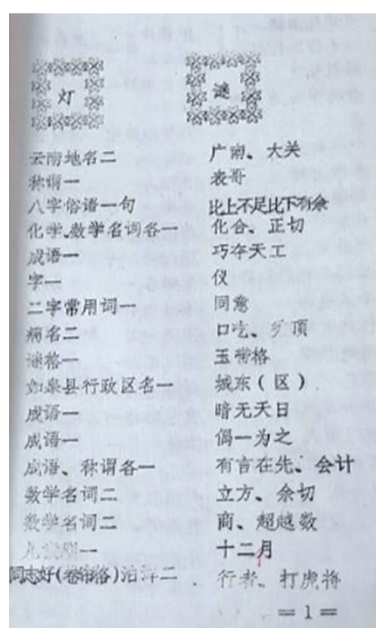 灯 谜
云南地名二 广南、大关
称谓一 表哥
八字俗语一句 比上不足比下有余
化学、数学名词各一 化合、正切
成语一 巧夺天工
字一 仪
二字常用词一 同意
病名二 口吃、歹顶
谜格一 玉带格
如皋县行政区名一 城东（区）
成语一 暗无天日
成语一 偶一为之
成语、称谓各一 有言在先、会计
数学名词二 立方、余切
数学名词二 商、超越数
一 十二月
同志好(卷帘格)泊浒二 行者、打虎将
=1=